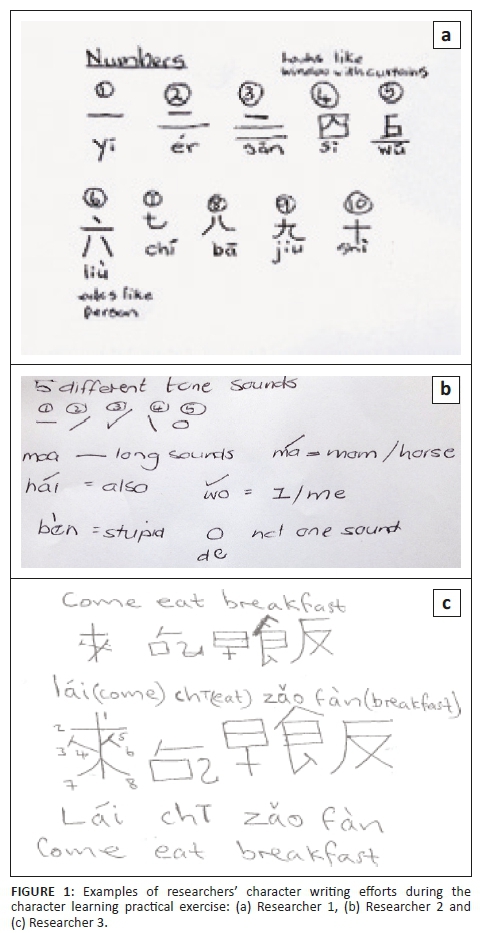 a
Numbers
looks like
window with curtains
① ② ③ ④ ⑤
一 二 三 四 五
yī ér sān sì wǔ
⑥ ⑦ ⑧ ⑨ ⑩
六 七 八 九 十
liù chí bā jiū shí
looks like
person
b
5 different tone sounds
① ② ③ ④ ⑤
maa — long sounds má = mom/horse
hái = also wǒ = I/me
bèn = stupid O not one sound
de
c
Come eat breakfast
來 吃 早 飯
lái (come) chī (eat) zǎo fàn (breakfast)
1
2 5
3 4 6
7 8
來 吃 早 飯
Lái chī zǎo fàn
Come eat breakfast
FIGURE 1: Examples of researchers' character writing efforts during the
character learning practical exercise: (a) Researcher 1, (b) Researcher 2 and
(c) Researcher 3.